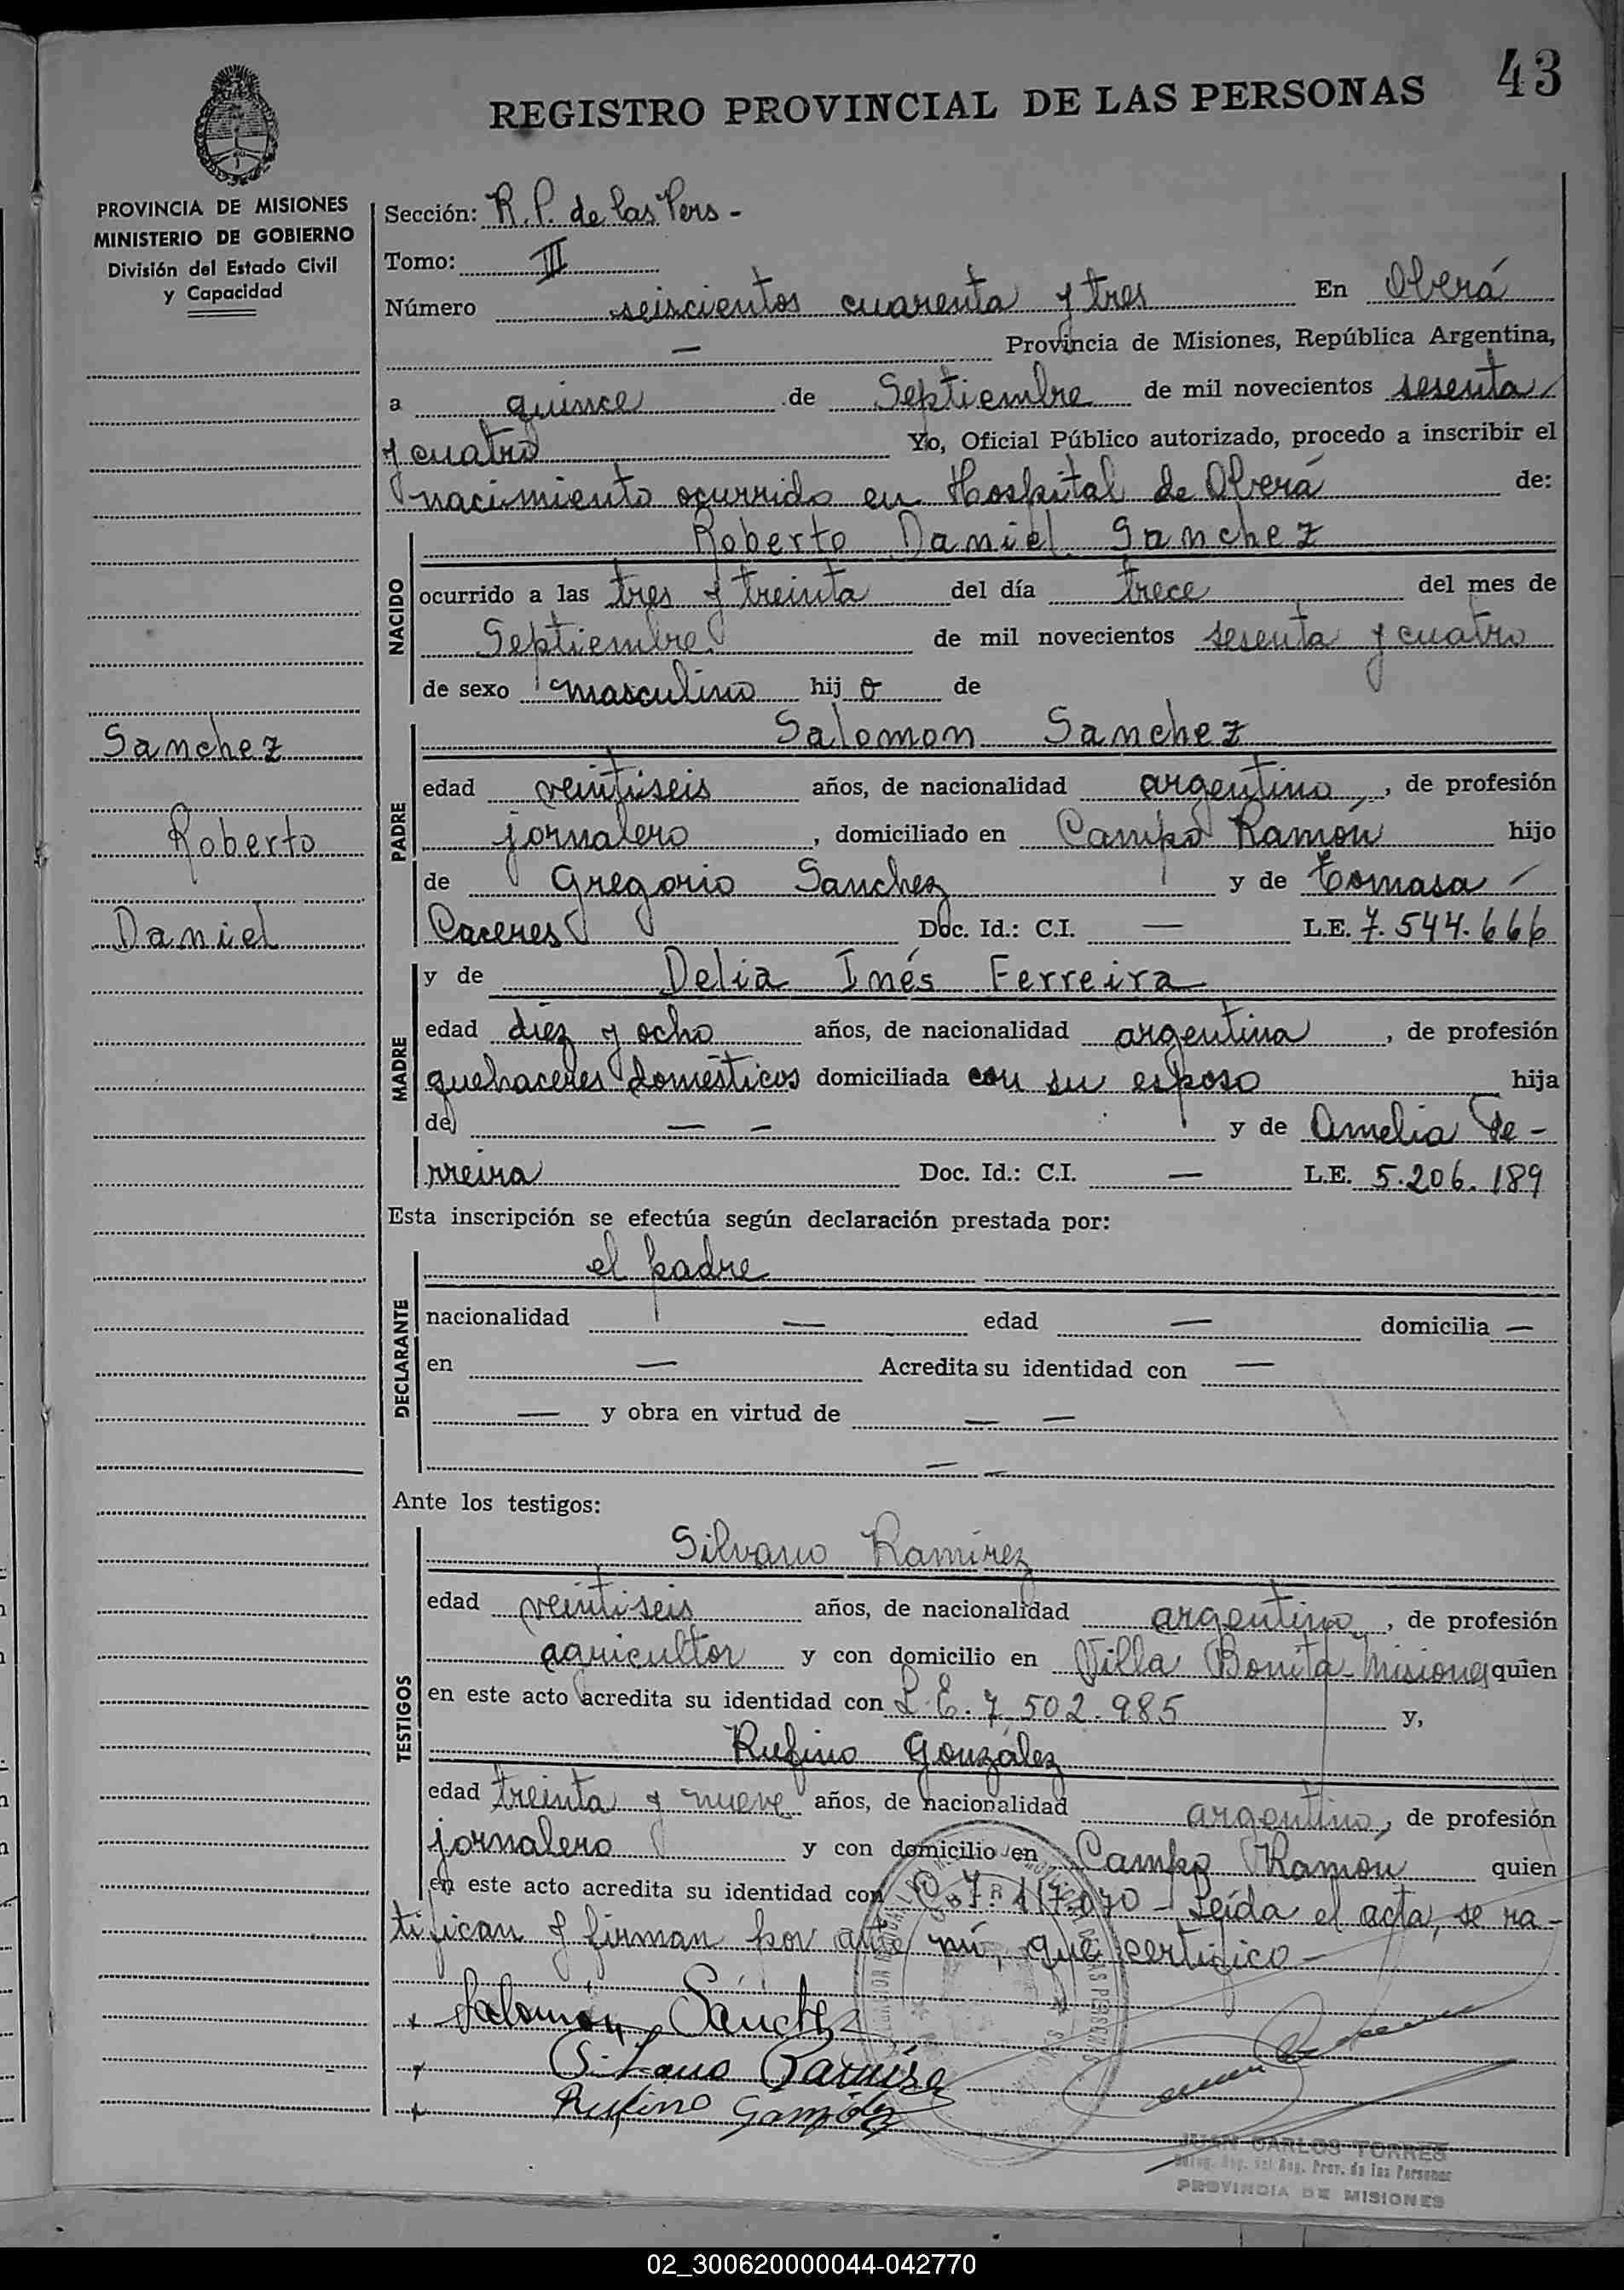 43
REGISTRO PROVINCIAL DE LAS PERSONAS
PROVINCIA DE MISIONES
MINISTERIO DE GOBIERNO
División del Estado Civil
y Capacidad
Sanchez
Roberto
Daniel
Sección: R. P. de las Pers -
Tomo: III
Número seiscientos cuarenta y tres En Oberá
— Provincia de Misiones, República Argentina,
a quince de Septiembre de mil novecientos sesenta
y cuatro Yo, Oficial Público autorizado, procedo a inscribir el
nacimiento ocurrido en Hospital de Oberá de:
NACIDO
Roberto Daniel Sanchez
ocurrido a las tres y treinta del día trece del mes de
Septiembre de mil novecientos sesenta y cuatro
de sexo masculino hij o de
PADRE
Salomon Sanchez
edad veintiseis años, de nacionalidad argentino, de profesión
jornalero, domiciliado en Campo Ramón hijo
de Gregorio Sanchez y de Tomasa -
Caceres Doc. Id.: C.I. — L.E. 7.544.666
MADRE
y de Delia Inés Ferreira
edad diez y ocho años, de nacionalidad argentina, de profesión
quehaceres domésticos domiciliada con su esposo hija
de — — y de Amelia Fe-
rreira Doc. Id.: C.I. — L.E. 5.206.189
Esta inscripción se efectúa según declaración prestada por:
DECLARANTE
el padre
nacionalidad — edad — domicilia —
en — Acredita su identidad con —
— y obra en virtud de — —
— —
Ante los testigos:
TESTIGOS
Silvano Ramírez
edad veintiseis años, de nacionalidad argentino, de profesión
agricultor y con domicilio en Villa Bonita-Misiones quien
en este acto acredita su identidad con L.E. 7.502.985 y,
Rufino González
edad treinta y nueve años, de nacionalidad argentino, de profesión
jornalero y con domicilio en Campo Ramon quien
en este acto acredita su identidad con - Leída el acta, se ra-
tifican y firman por ante mí, que certifico -
x Salomón Sánchez
x Silvano Ramirez
x Rufino Gonzalez
JUAN CARLOS TORRES
Reg. Prov. de las Personas
PROVINCIA DE MISIONES
02_300620000044-042770